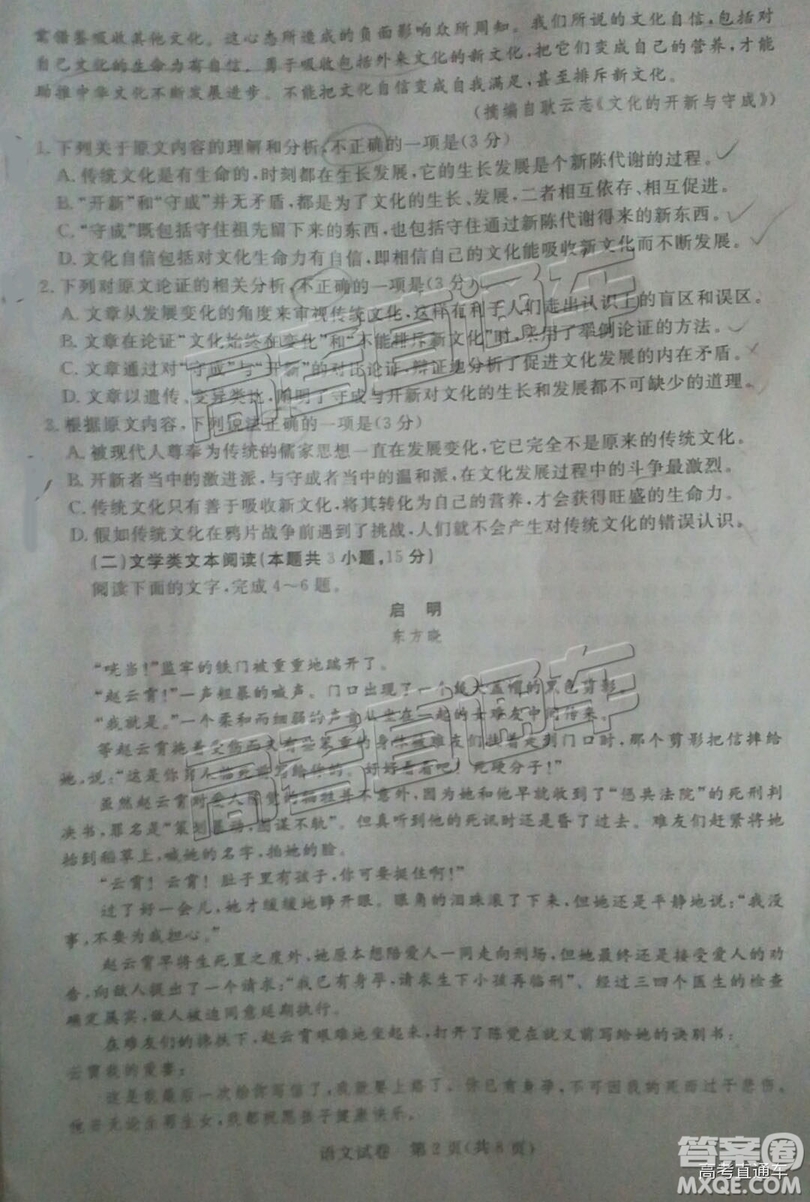 案借鉴吸收其他文化。这心态所造成的负面影响众所周知。我们所说的文化自信，包括对
自己文化的生命力有自信。勇于吸收包括外来文化的新文化，把它们变成自己的营养，才能
助推中华文化不断发展进步。不能把文化自信变成自我满足，甚至排斥新文化。
（摘编自耿云志《文化的开新与守成》）
1. 下列关于原文内容的理解和分析，不正确的一项是(3分)
A. 传统文化是有生命的，时刻都在生长发展，它的生长发展是个新陈代谢的过程。
B. “开新”和“守成”并无矛盾，都是为了文化的生长、发展，二者相互依存、相互促进。
C. “守成”既包括守住祖先留下来的东西，也包括守住通过新陈代谢得来的新东西。
D. 文化自信包括对文化生命力有自信，即相信自己的文化能吸收新文化而不断发展。
2. 下列对原文论证的相关分析，不正确的一项是(3分)
A. 文章从发展变化的角度来审视传统文化，这样有利于人们走出认识上的盲区和误区。
B. 文章在论证“文化始终在变化”和“不能排斥新文化”时，采用了举例论证的方法。
C. 文章通过对“守成”与“开新”的对比论证，辩证地分析了促进文化发展的内在矛盾。
D. 文章以遗传、变异类比，阐明了守成与开新对文化的生长和发展都不可缺少的道理。
3. 根据原文内容，下列说法正确的一项是(3分)
A. 被现代人尊奉为传统的儒家思想一直在发展变化，它已完全不是原来的传统文化。
B. 开新者当中的激进派，与守成者当中的温和派，在文化发展过程中的斗争最激烈。
C. 传统文化只有善于吸收新文化，将其转化为自己的营养，才会获得旺盛的生命力。
D. 假如传统文化在鸦片战争前遇到了挑战，人们就不会产生对传统文化的错误认识。
(二)文学类文本阅读(本题共3小题，15分)
阅读下面的文字，完成4～6题。
启 明
东方晓
“咣当！”监牢的铁门被重重地踹开了。
“赵云霄！”一声粗暴的喊声。门口出现了一个极大盖帽的黑色剪影。
“我就是。”一个柔和而细弱的声音从坐在一起的女难友中间传来。
等赵云霄拖着受伤而又笨重的身体被难友们扶着走到门口时，那个剪影把信摔给
她，说：“这是你男人临死前写给你的。好好看看吧！死硬分子！”
虽然赵云霄对爱人陈觉的牺牲并不意外，因为她和他早就收到了“惩共法院”的死刑判
决书，罪名是“策划暴动，图谋不轨”。但真听到他的死讯时还是昏了过去。难友们赶紧将她
抬到稻草上，喊她的名字，掐她的脸。
“云霄！云霄！肚子里有孩子，你可要挺住啊！”
过了好一会儿，她才缓缓地睁开眼。眼角的泪珠滚了下来，但她还是平静地说：“我没
事，不要为我担心。”
赵云霄早将生死置之度外，她原本想陪爱人一同走向刑场，但她还是接受爱人的劝
告，向敌人提了一个请求：“我已有身孕，请求生下小孩再临刑”。经过三四个医生的检查
确定属实，敌人被迫同意延期执行。
在难友们的搀扶下，赵云霄艰难地坐起来，打开了陈觉在就义前写给她的诀别书：
云霄我的爱妻：
这是我最后一次给你写信了，我就要上路了。你已有身孕，不可因我的死而过于悲伤。
他日无论生男生女，我都祝愿孩子健康快乐。
语文试卷 第2页(共8页)
高考直通车
高考直通车
答案圈
高考直通车
MXQE.COM